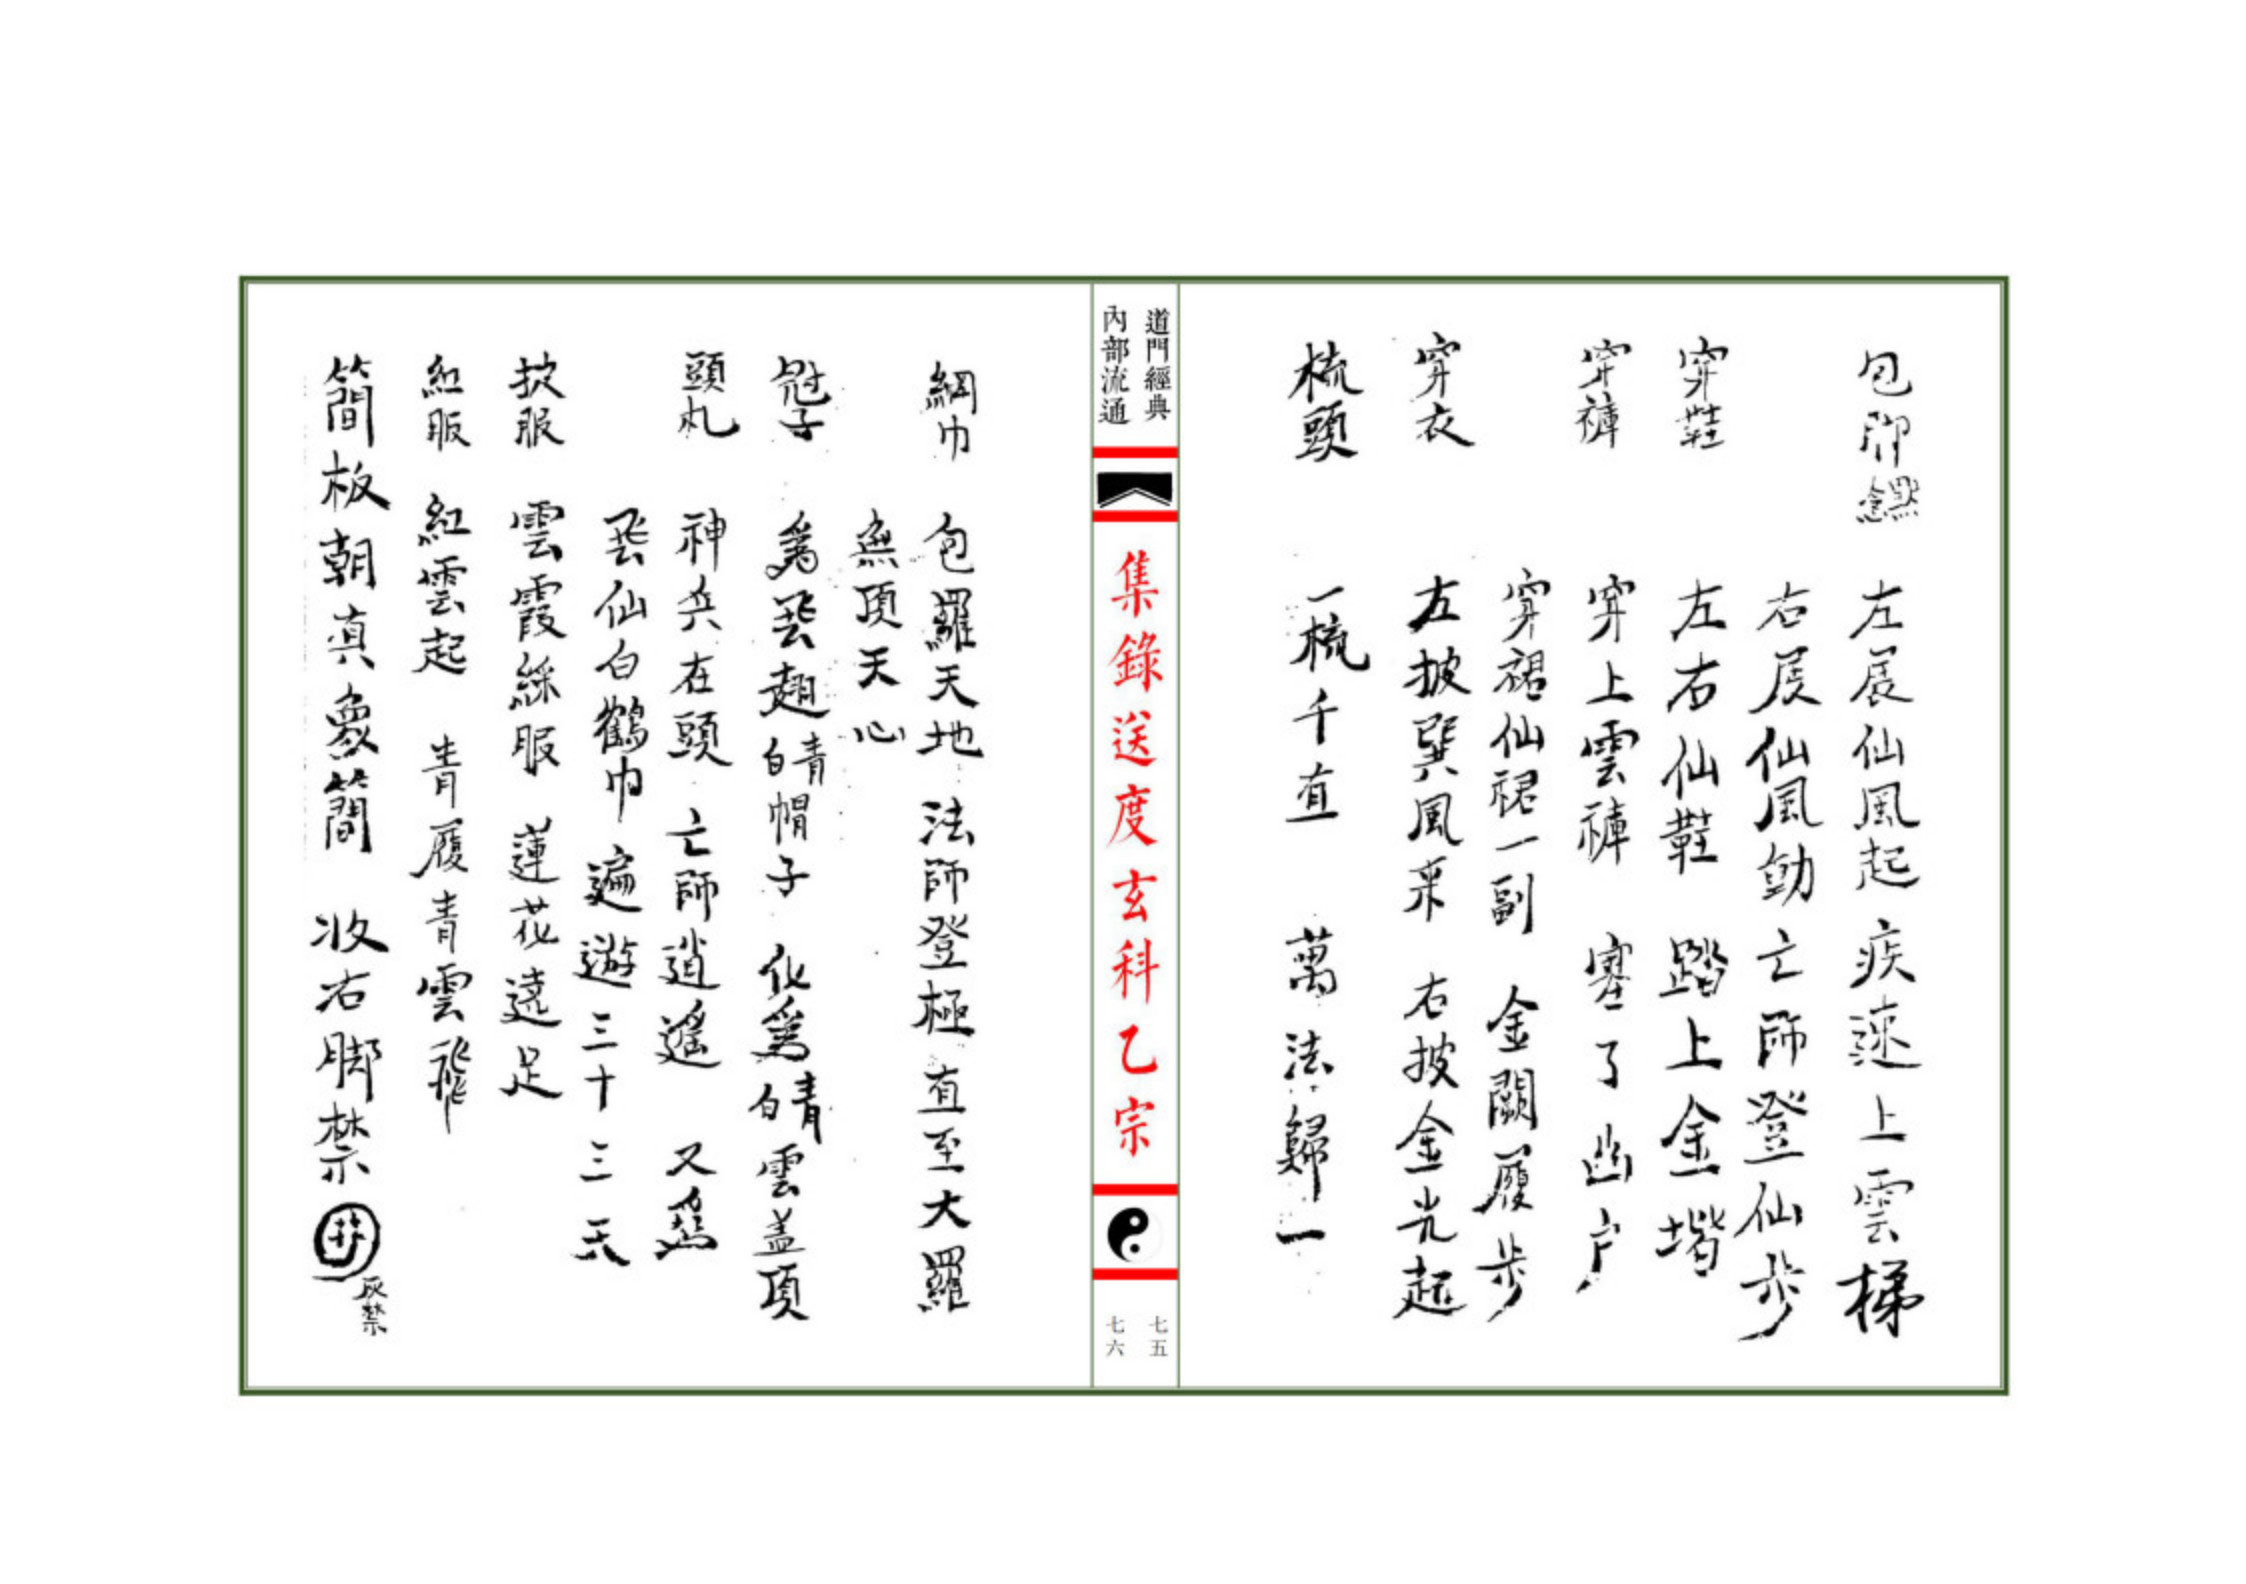 包脚
左展仙風起 疾速上雲梯
右展仙風動 亡師登仙步
穿鞋 左右仙鞋 踏上金堦
穿褲 穿上雲褲 塞了凶户
穿裙仙裙一副 金闕履步
穿衣 左披巽風來 右披金光起
梳頭 一梳千直 萬法歸一
道門經典
內部流通
集錄送度玄科乙宗
七五
七六
網巾 包羅天地 法師登極 直至大羅
無頂天心
冠子 為飛翅皘帽子 化為皘雲盖頂
頭札 神兵在頭 亡師逍遙 又為
飛仙白鶴巾 遍遊三十三天
披服 雲霞綵服 蓮花遶足
紅服 紅雲起 青履青雲飛
簡板朝真象簡 收右脚禁
灰禁